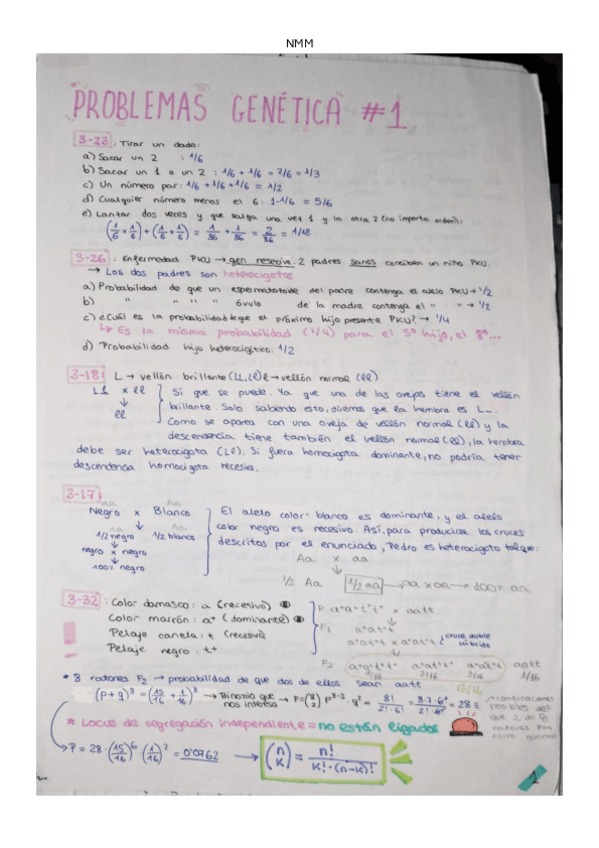 NMM
PROBLEMAS GENÉTICA #1
3-23: Tirar un dado:
a) Sacar un 2 : 1/6
b) Sacar un 1 o un 2 : 1/6 + 1/6 = 2/6 = 1/3
c) Un número par: 1/6 + 1/6 + 1/6 = 1/2
d) Cualquier número menos el 6: 1-1/6 = 5/6
e) Lanzar dos veces y que salga una vez 1 y la otra 2 (no importa orden):
(1/6 * 1/6) + (1/6 * 1/6) = 1/36 + 1/36 = 2/36 = 1/18
3-26: Enfermedad PKU → gen recesivo. 2 padres sanos conciben un niño PKU.
→ Los dos padres son heterocigotos
a) Probabilidad de que un espermatozoide del padre contenga el alelo PKU → 1/2
b) " " " " óvulo de la madre contenga el " " → 1/2
c) ¿Cuál es la probabilidad de que el próximo hijo presente PKU? → 1/4
↳ Es la misma probabilidad (1/4) para el 5º hijo, el 8º...
d) Probabilidad hijo heterocigótico: 1/2
3-18: L → vellón brillante (LL, Ll) l → vellón normal (ll)
L1 x ll
↓
ll
Sí que se puede. Ya que una de las ovejas tiene el vellón
brillante. Solo sabiendo esto, diremos que la hembra es L_.
Como se aparea con una oveja de vellón normal (ll) y la
descendencia tiene también el vellón normal (ll), la hembra
debe ser heterocigota (Ll). Si fuera homocigota dominante, no podría tener
descendencia homocigota recesiva.
3-17:
aa Aa
Negro x Blanco
aa Aa
1/2 negro 1/2 blanco
negro x negro
↓
100% negro
El alelo color blanco es dominante, y el alelo
color negro es recesivo. Así, para producirse los cruces
descritos por el enunciado, Pedro es heterocigoto tal que:
Aa x aa
1/2 Aa 1/2 aa → aa x aa → 100% aa
3-32: Color damasco: a (recesivo)
Color marrón: a⁺ (dominante)
Pelaje canela: t (recesivo)
Pelaje negro: t⁺
P a⁺a⁺t⁺t⁺ x aatt
F1 a⁺at⁺t
a⁺at⁺t x a⁺at⁺t } cruce doble híbrido
F2 a⁺a⁺t⁺t⁺ a⁺at⁺t a⁺att aatt
9/16 3/16 3/16 1/16
15/16
* 8 ratones F2 → probabilidad de que dos de ellos sean aatt
(p+q)⁸ = (15/16 + 1/16)⁸ → Binomio que nos interesa → P = (8 2) P⁸⁻² · q² = 8!/2!·6! = 8·7·6!/2!·6! = 28
combinaciones
posibles del
que 2 de 8
ratones
* Locus de segregación independiente = no están ligados
P = 28 · (15/16)⁶ · (1/16)² = 0'0762 → (n K) = n!/K!·(n-K)!
1